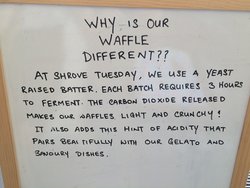 WHY IS OUR
WAFFLE
DIFFERENT??
AT SHROVE TUESDAY, WE USE A YEAST
RAISED BATTER. EACH BATCH REQUIRES 3 HOURS
TO FERMENT. THE CARBON DIOXIDE RELEASED
MAKES OUR WAFFLES LIGHT AND CRUNCHY!
IT ALSO ADDS THIS HINT OF ACIDITY THAT
PAIRS BEAUTIFULLY WITH OUR GELATO AND
SAVOURY DISHES.